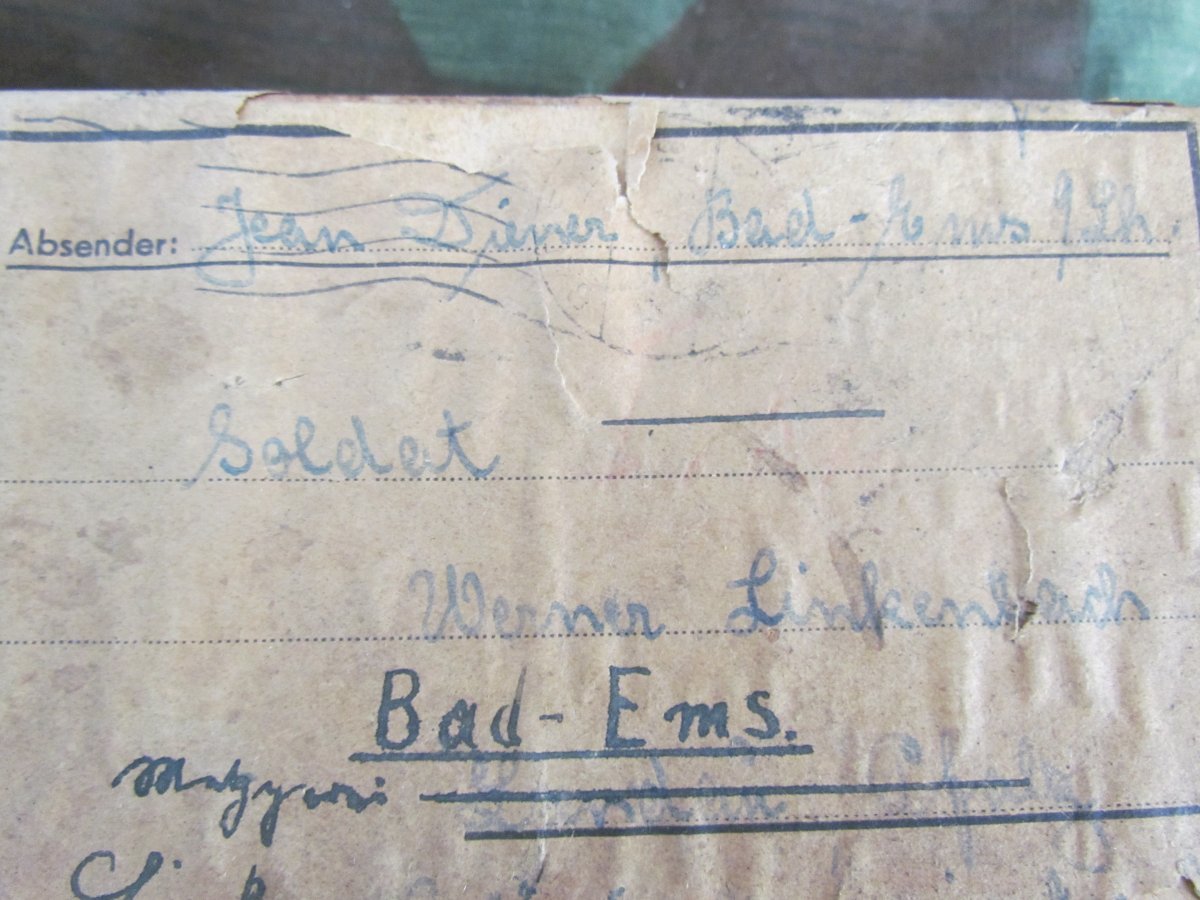 Absender: Jean Diener, Bad-Ems
Soldat
Werner Linkenbach
Bad-Ems.
Metzgerei